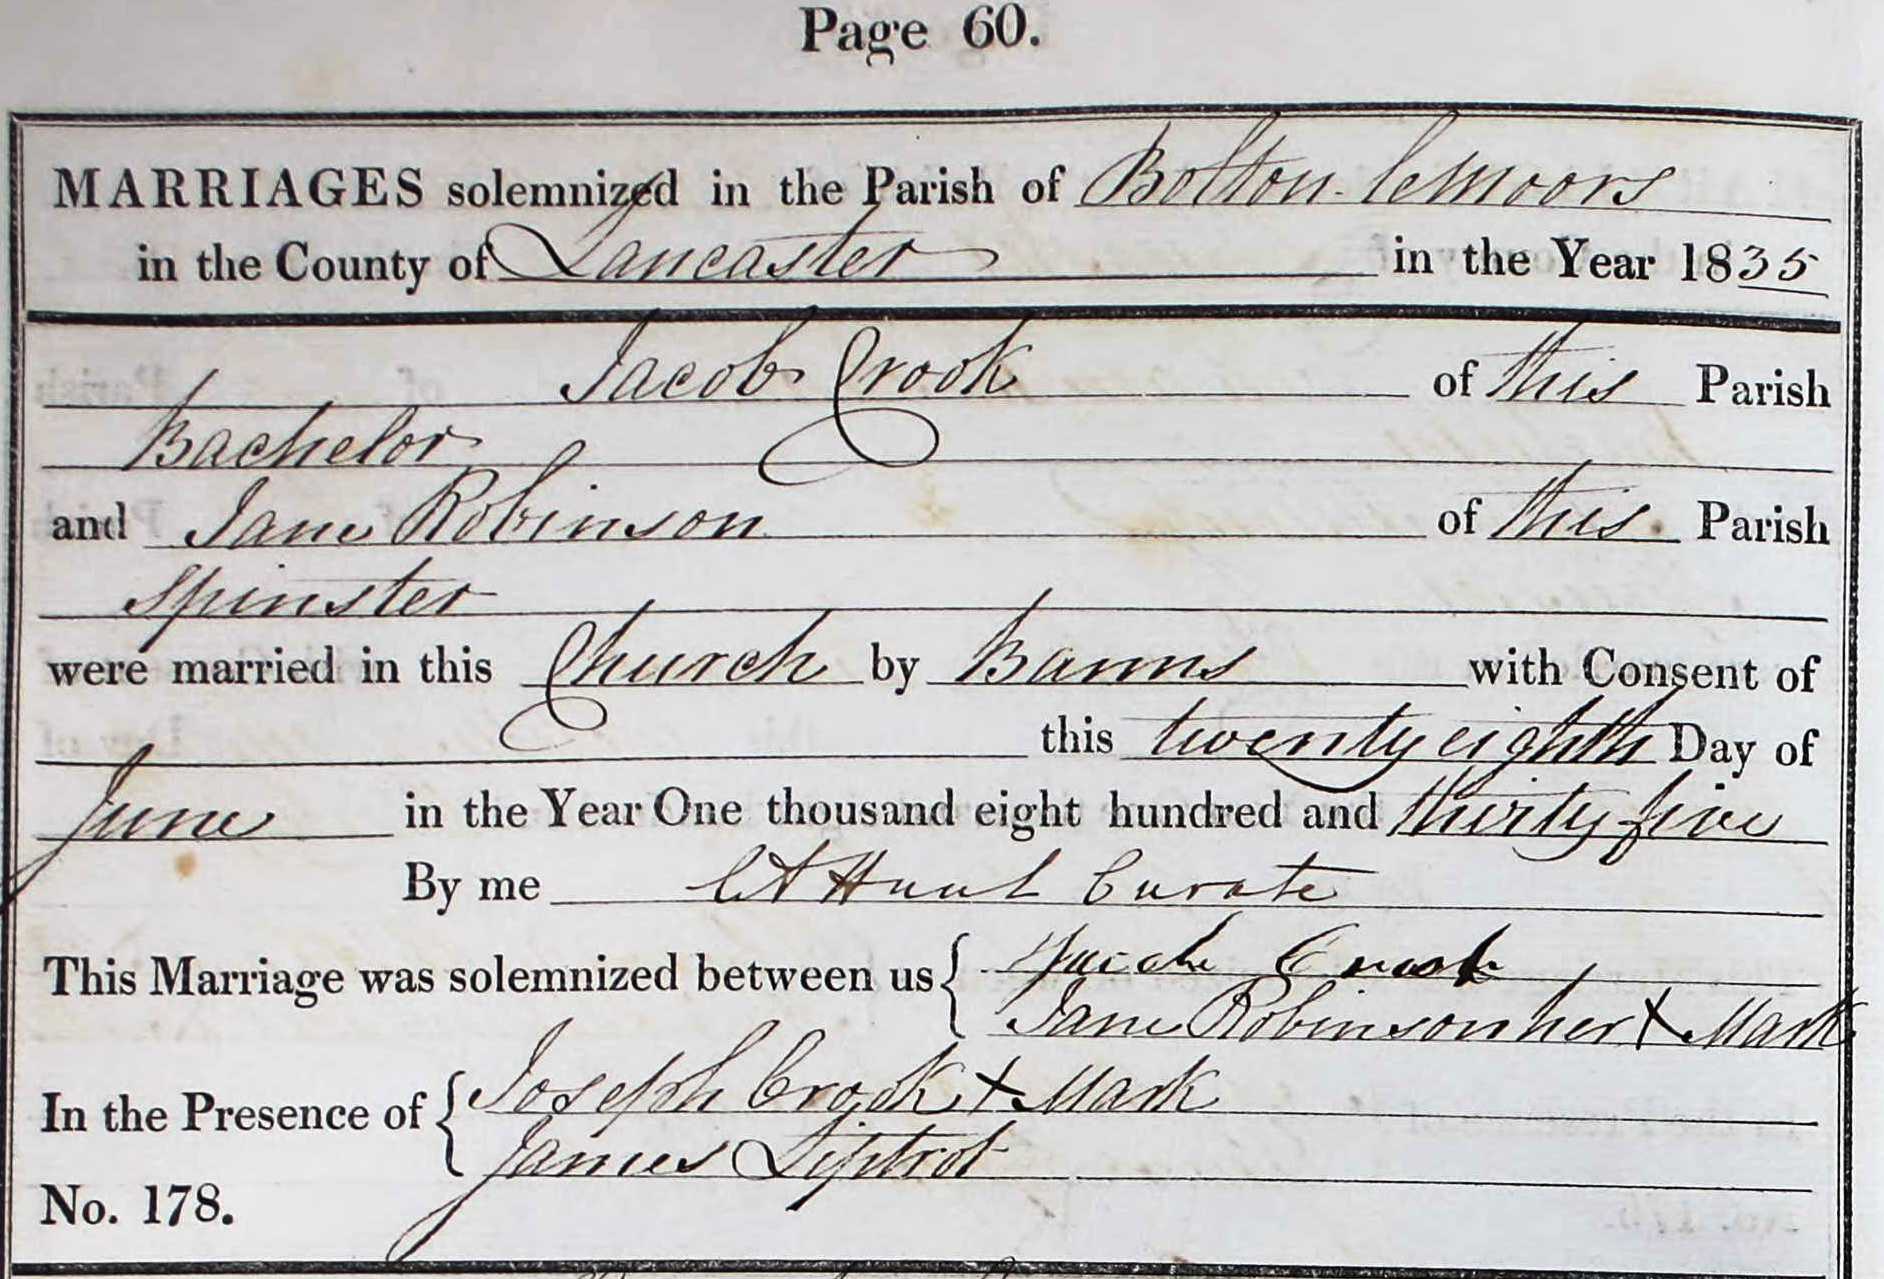 Page 60.
MARRIAGES solemnized in the Parish of Bolton-le Moors
in the County of Lancaster in the Year 1835
Jacob Crook of this Parish
Bachelor
and Jane Robinson of this Parish
Spinster
were married in this Church by Banns with Consent of
this twenty eighth Day of
June in the Year One thousand eight hundred and thirty five
By me Hunt Curate
This Marriage was solemnized between us { Jacob Crook
Jane Robinson her X Mark
In the Presence of { Joseph Crook X Mark
James Liptrot
No. 178.